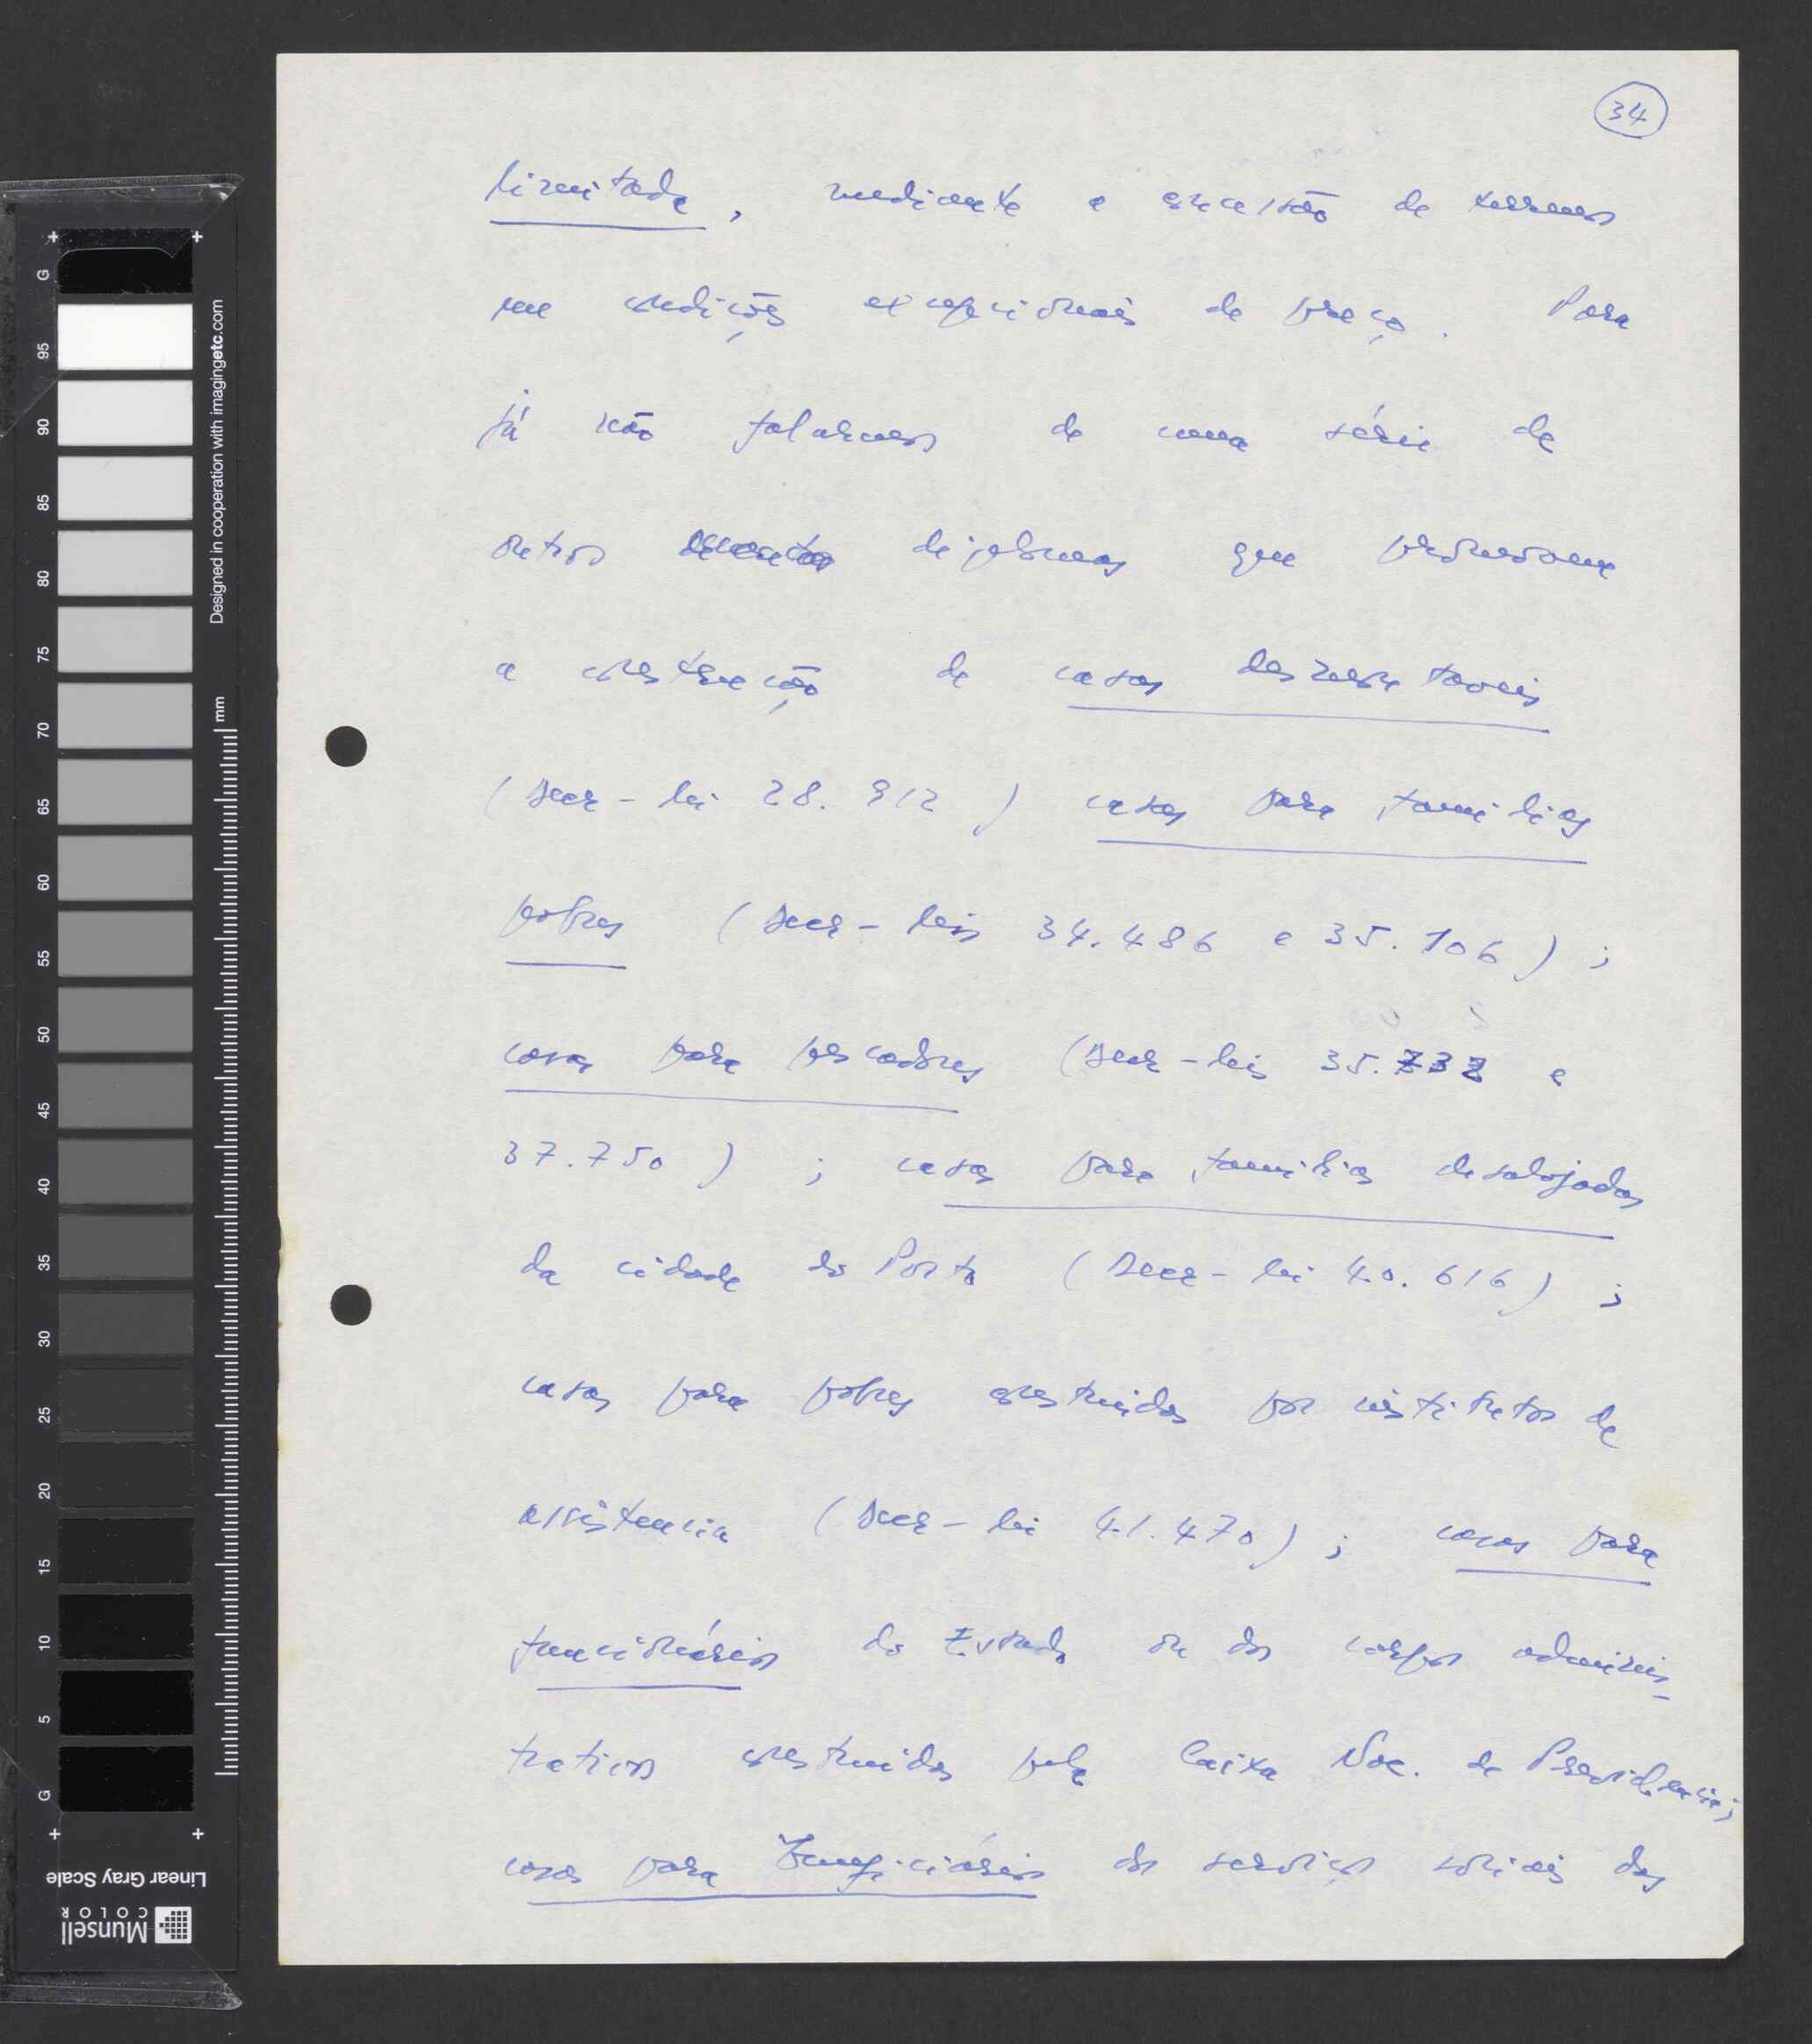 34
limitada, mediante a concessão de terrenos
em condições excepcionais de preço. Para
já não falarmos de uma série de
outros diplomas que promovem
a construção de casas desmontáveis
(Decr-lei 28.912) casas para famílias
pobres (Decr-leis 34.486 e 35.106);
casas para pescadores (Decr-leis 35.732 e
37.750); casas para famílias desalojadas
da cidade do Porto (Decr-lei 40.616);
casas para pobres construidas por institutos de
assistencia (Decr-lei 41.470); casas para
funcionários do Estado ou dos corpos adminis-
trativos construidas pela Caixa Nac. de Previdencia;
casas para beneficiários dos serviços sociais das
G
95
90
85
80
75
70
65
60
55
50
45
40
35
30
25
20
15
10
5
G
Designed in cooperation with imagingetc.com
mm
Linear Gray Scale
Munsell
COLOR